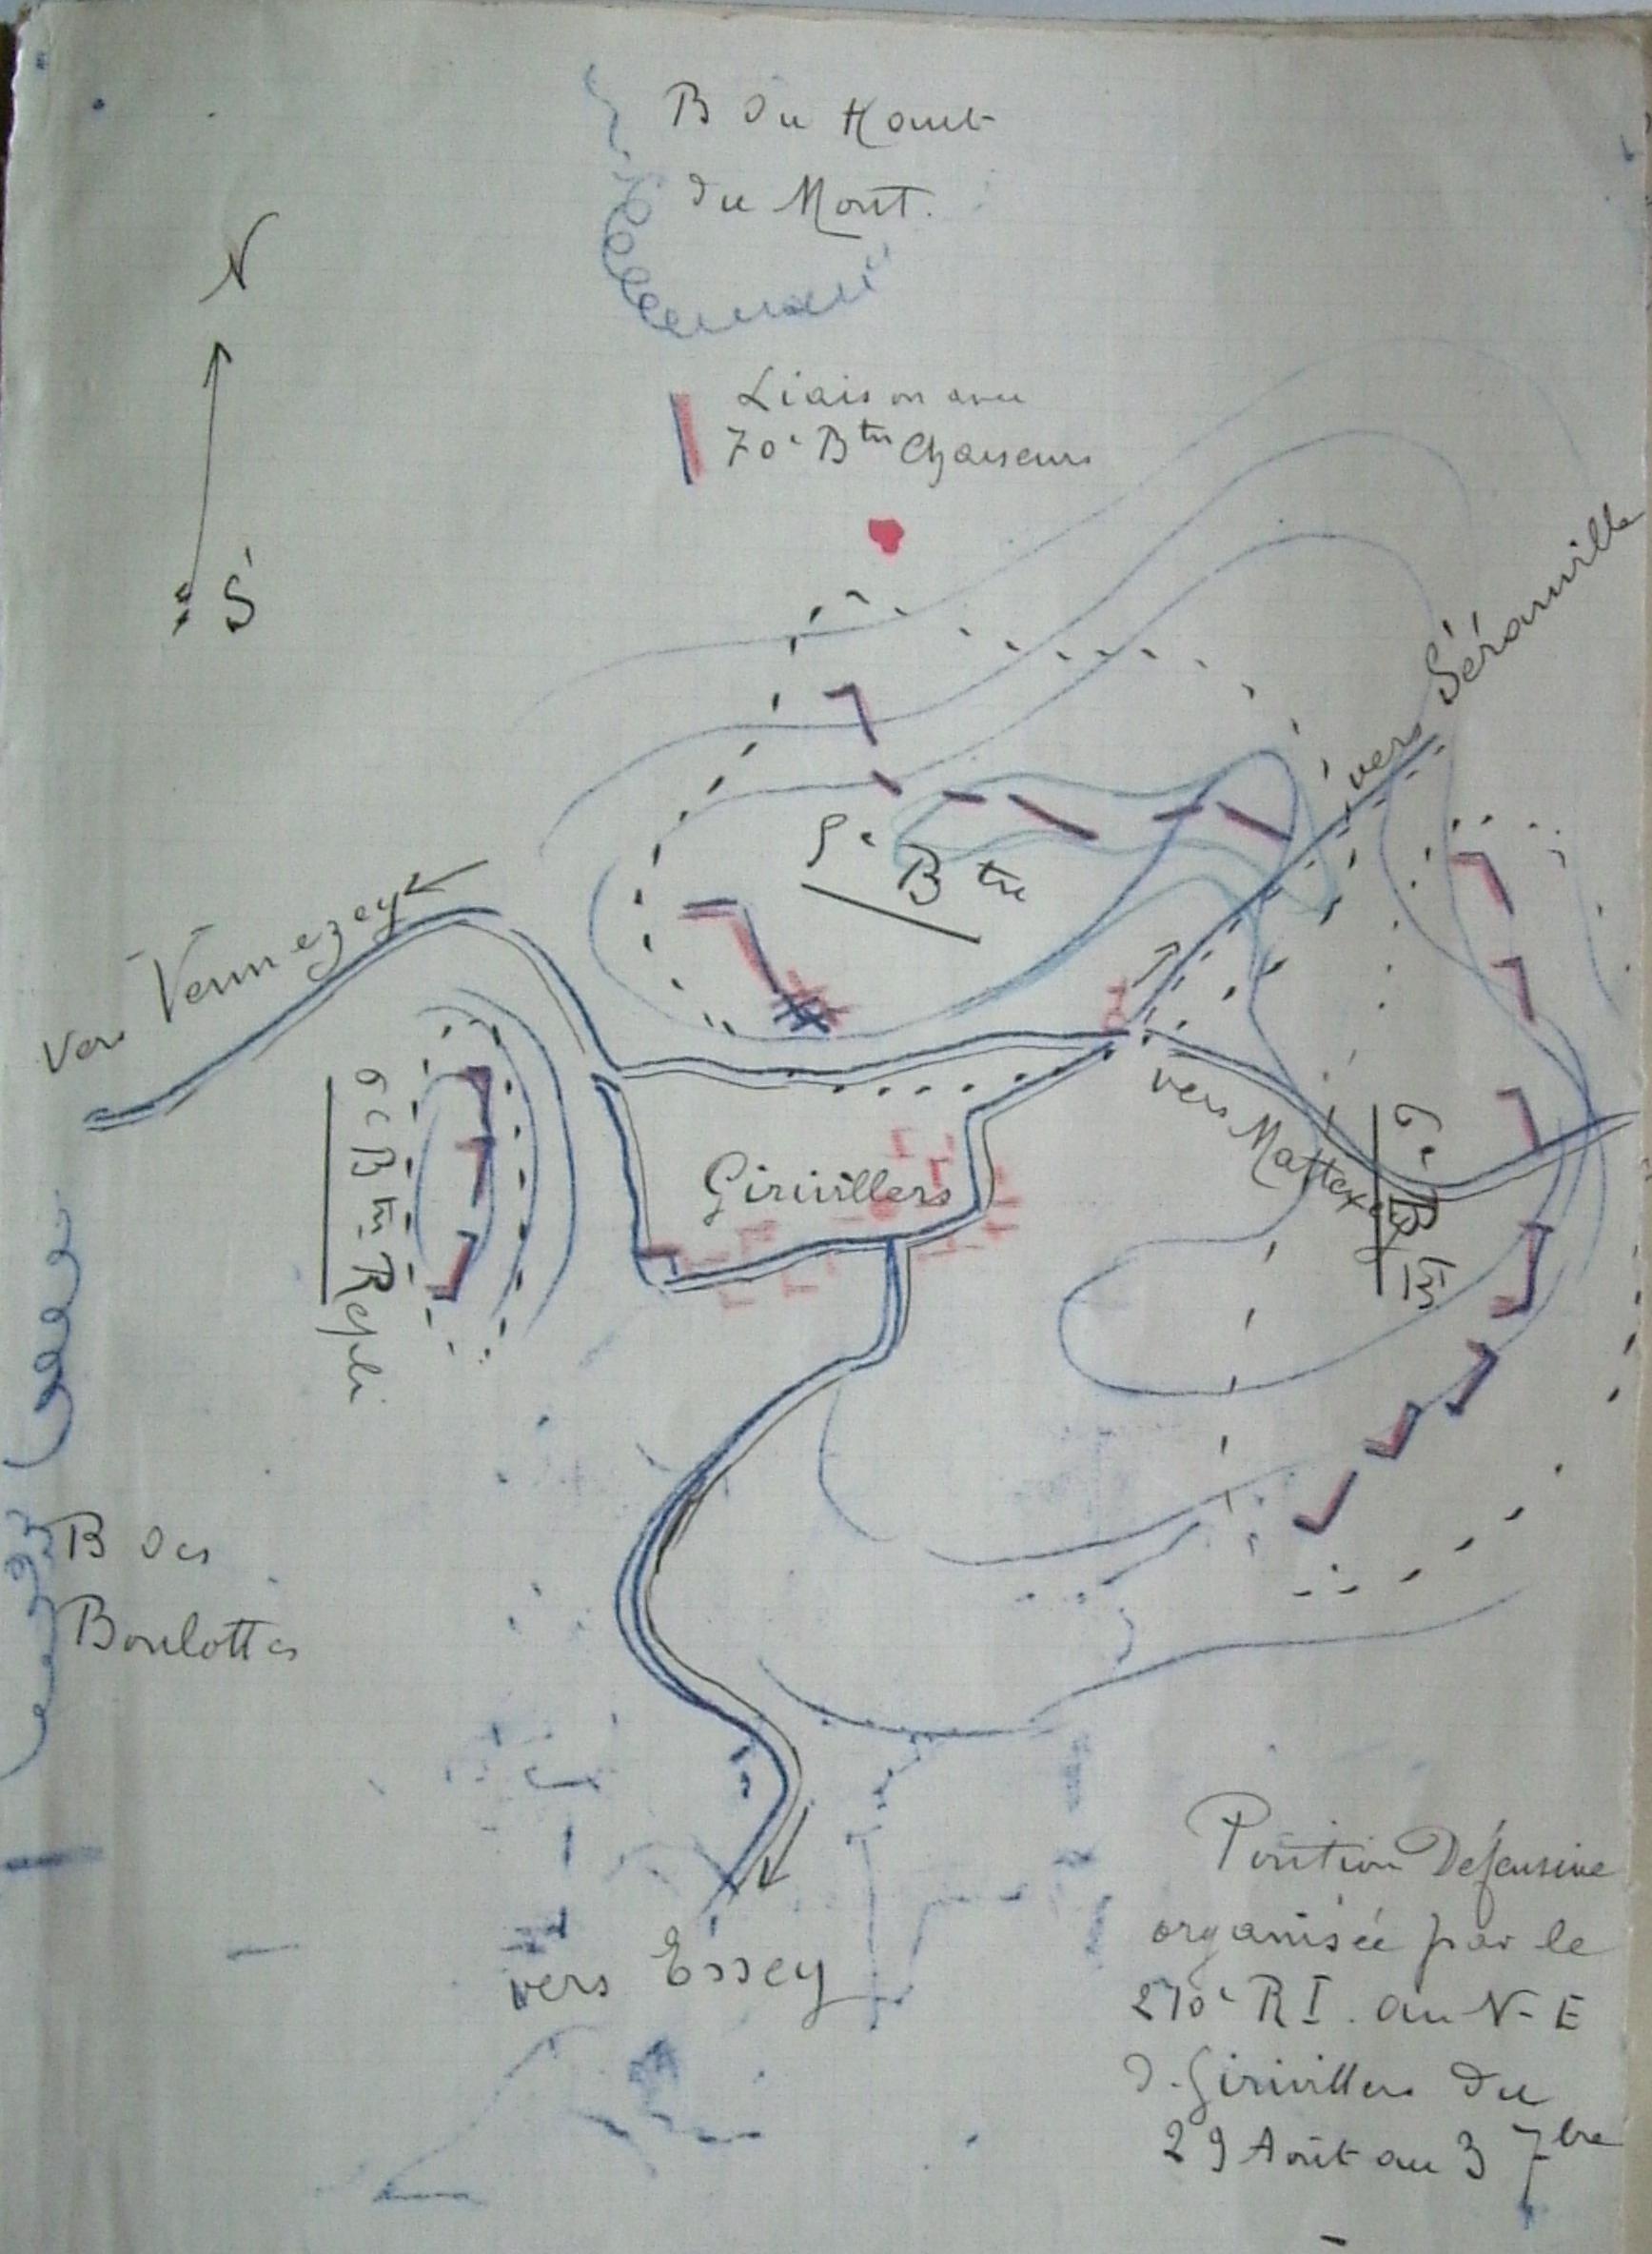 B du Haut
du Mont.
N
S
Liaison avec
70e Bton Chasseurs
vers Séranville
5e
Bton
vers Vennezey
6e Bton Repli
Girivillers
vers Mattexey
6e Bton
B des
Boulottes
vers Essey
Position Défensive
organisée par le
270e R I. au N-E
d. Girivillers du
29 Août au 3 7bre